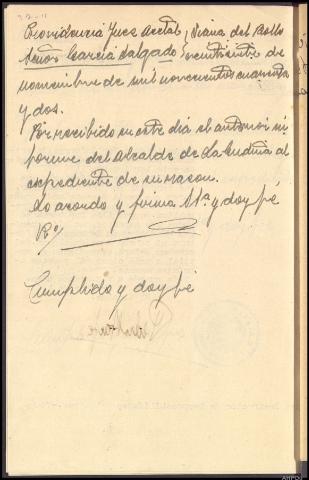 Providencia Juez Acctal, Viana del Bollo
Señor García Salgado, veintisiete de
noviembre de mil novecientos cuarenta
y dos.
Por recibido en este dia el anterior in
forme del Alcalde de La Gudiña al
expediente de su razon.
Lo acordo y firma Sª y doy fé
Cumplido y doy fé
AHPOU